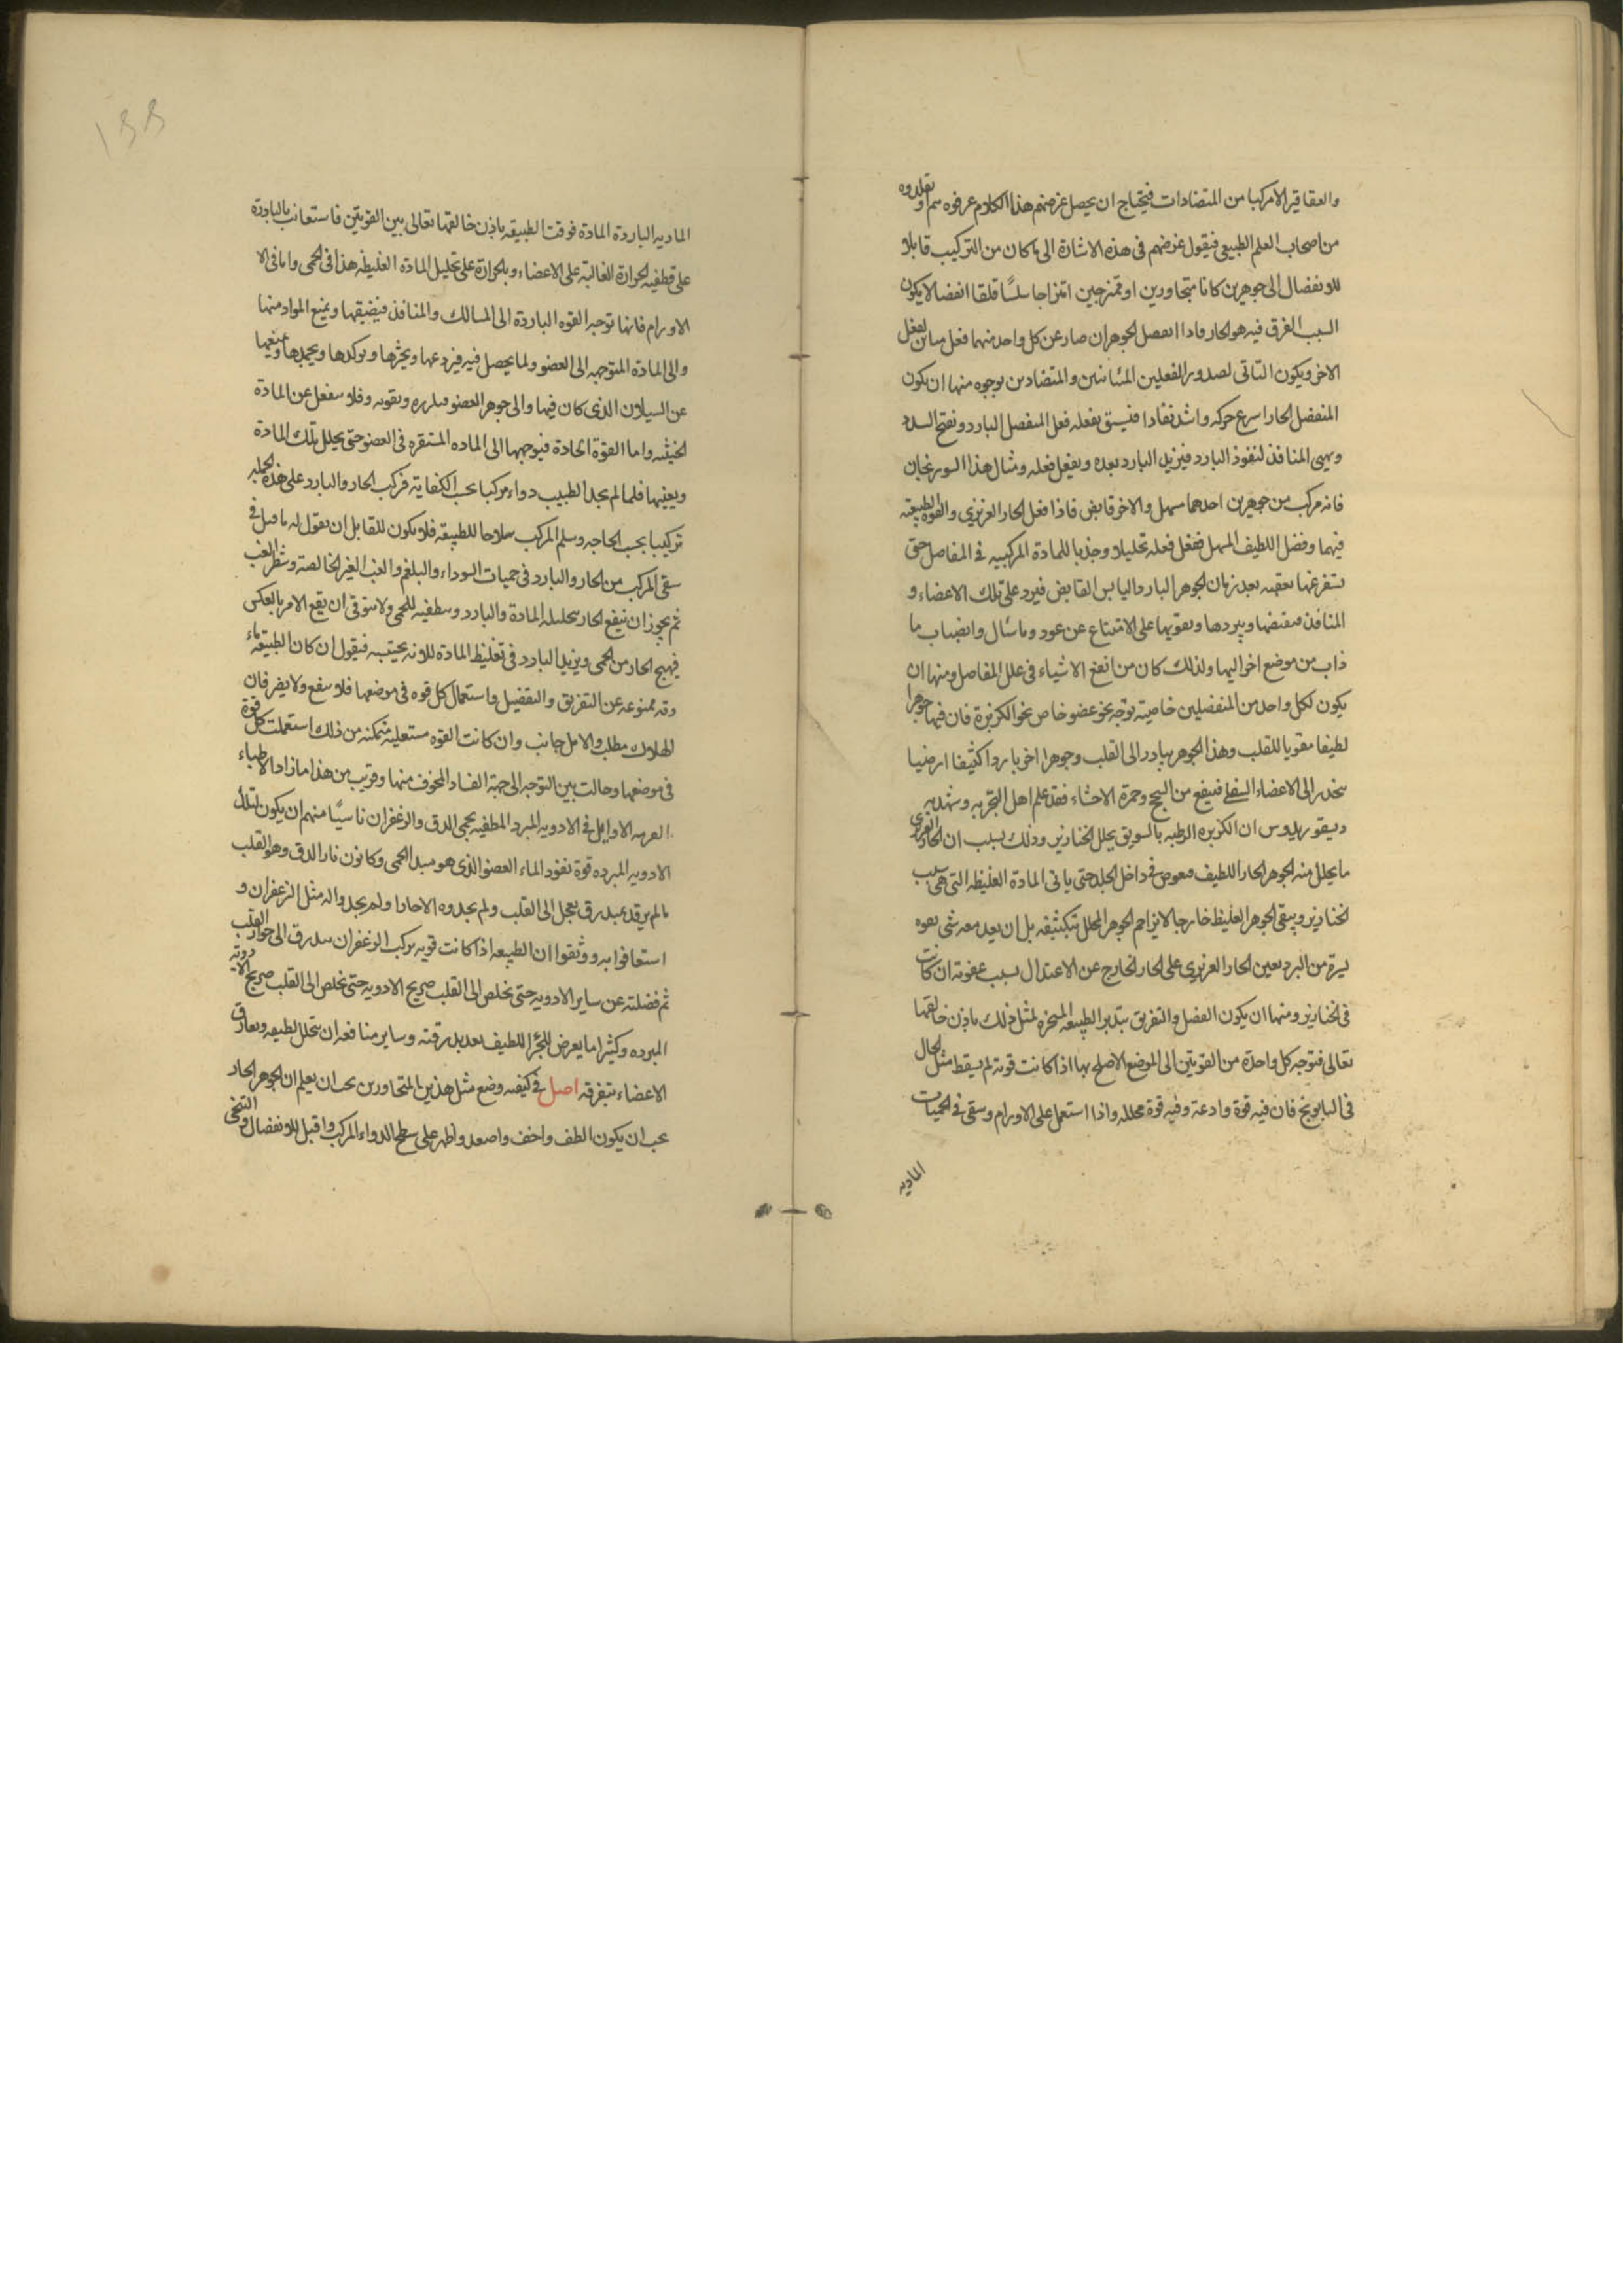 والعقاقير الامركبا من المتضادات فيحتاج ان يحصل غرضهم هذا الكلام عرفوه سم او تقلدوه
من اصحاب العلم الطبيعى فيقول غرضهم فى هذه الاشارة الى ما كان من التركيب قابلا
للانفصال الى جوهرين كانا متجاورين او ممتزجين امتزاجا سلسًا قلقا انفصالا يكون
السبب المفرق فيه هو الحار فاذا انفصل الجوهران صار عن كل واحد منهما فعل مباين لفعل
الاخر ويكون التاتى لصدور الفعلين المتباينين والمتضادين بوجوه منها ان يكون
المنفصل الحار اسرع حركه واشد نفادا فيسبق بفعله فعل المنفصل البارد ويفتح السدد
ويهيى المنافذ لنفوذ البارد فيزيل البارد بعده ويفعل فعله ومثال هذا السورنجان
فانه مركب من جوهرين احدهما مسهل والاخر قابض فاذا فعل الحار الغريزى والقوه الطبيعيه
فيهما وفضل اللطيف المسهل ففعل فعله تحليلا وجذبا للمادة المركبيه فى المفاصل حتى
يستفرغها يعقبه بعد زمان الجوهر البارد اليابس القابض فيرد على تلك الاعضاء و
المنافذ فيقبضها ويبردها ويقويها على الامتناع عن عود ما سال وانصباب ما
ذاب من موضع اخر اليها ولذلك كان من انفع الاشياء فى علل المفاصل ومنها ان
يكون لكل واحد من المنفصلين خاصية توجه نحو عضو خاص نحو الكزبرة فان فيها جوهرا
لطيفا مقويا للقلب وهذا الجوهر يبادر الى القلب وجوهرا اخر باردا كثيفا ارضيا
ينحدر الى الاعضاء السفلى فينفع من السحج وحمرة الاحشاء فقد علم اهل التجربه وشهد به
ديسقوريدوس ان الكزبره الرطبه بالسويق يحلل الخنازير وذلك بسبب ان الحار الغريزى
ما يحلل منه الجوهر الحار اللطيف فيغوص فى داخل الجلد حتى ياتى المادة الغليظه التى هى سبب
الخنازير ويبقى الجوهر الغليظ خارجا لا يزاحم الجوهر المحلل بتكثيفه بل ان بعد معه شى بقوه
يسيرة من البرد يعين الحار الغريزى على الحار الخارج عن الاعتدال بسبب عفونه ان كانت
فى الخنازير ومنها ان يكون الفصل والتفريق بتدبير الطبيعه المسخره لمثل ذلك باذن خالقها
تعالى فتوجه كل واحدة من القوتين الى الموضع الاصلح بها اذا كانت قوته لم يسقط مثل الحال
فى البابونج فان فيه قوة رادعة وفيه قوة محلله واذا استعمل على الاورام وسقى فى الحميات
الماديه
الماديه الباردة المادة فوقت الطبيعه باذن خالقها تعالى بين القوتين فاستعانت بالباردة
على تطفيه الحرارة الغالبة على الاعضاء وبالحرارة على تحليل المادة الغليظه هذا فى الحمى واما فى الا
الاورام فانها توجه القوه الباردة الى المسالك والمنافذ فيضيقها ويمنع المواد منها
والى المادة المتوجهه الى العضو ولما يحصل فيه فيردعها ويخثرها ويركدها ويجمدها ويمنعها
عن السيلان الذى كان فيها والى جوهر العضو فيبرده ويقويه فلا ينفعل عن المادة
الخبيثه واما القوة الحادة فيوجهها الى الماده المستقره فى العضو حتى يحلل تلك المادة
ويفنيها فلما لم يجد الطبيب دواء مركبا بحسب الكفايه فركب الحار والبارد على هذه الجمله
تركيبا بحسب الحاجه وسلم المركب سلاحا للطبيعه فلا يكون للقايل ان يقول له ما قيل فى
سقى المركب من الحار والبارد فى حميات السوداء والبلغم والغب الغير الخالصة وشطر الغب
ثم يجوز ان ينفع الحار بتحليله المادة والبارد بتطفيه للحمى ولا يتوقى ان يقع الامر بالعكس
فيهيج الحار من الحمى ويزيد البارد فى تغليظ المادة للانه يجتنبه فيقول ان كان الطبيعه ماء
وته ممنوعه عن التفريق والتفضيل واستعمال كل قوه فى موضعها فلا ينفع ولا يضر فان
الهلاك مطلب والامل جانب وان كانت القوه مستعليه متمكنه من ذلك استعملت كل قوة
فى موضعها وحالت بين التوجه الى جهة الفساد المخوف منها وقريب من هذا ما زاد الاطباء
الاوايل فى الادويه المبرد المطفيه لحمى الدق والزعفران ناسيًا منهم ان يكون لتلك
الادويه المبرده قوة نفوذ الماء العضو الذى هو مبد الحمى وكانون نار الدق وهو القلب
مالم يرقد عبدرق يعجل الى القلب ولم يجدوه الاحارا ولم يجدوا له مثل الزعفران و
استعافوا به ووثقوا ان الطبيعه اذا كانت قويه يركب الزعفران يبدرق الى جوار القلب
ثم فضلته عن ساير الادويه حتى يخلص الى القلب صريح الادويه حتى تخلص الى القلب صريح الادويه
المبرده وكثيرا ما يعرض للجزء اللطيف بعد بدرقته وساير منافعه ان يتحلل لطبيعه ويفارق
الاعضاء بتفرقه اصل فى كيفيه وضع مثل هذين المتجاورين يجب ان يعلم ان الجوهر الحار
يجب ان يكون الطف واخف واصعد واظهر على سطح الدواء المركب واقبل للانفصال والتنحى